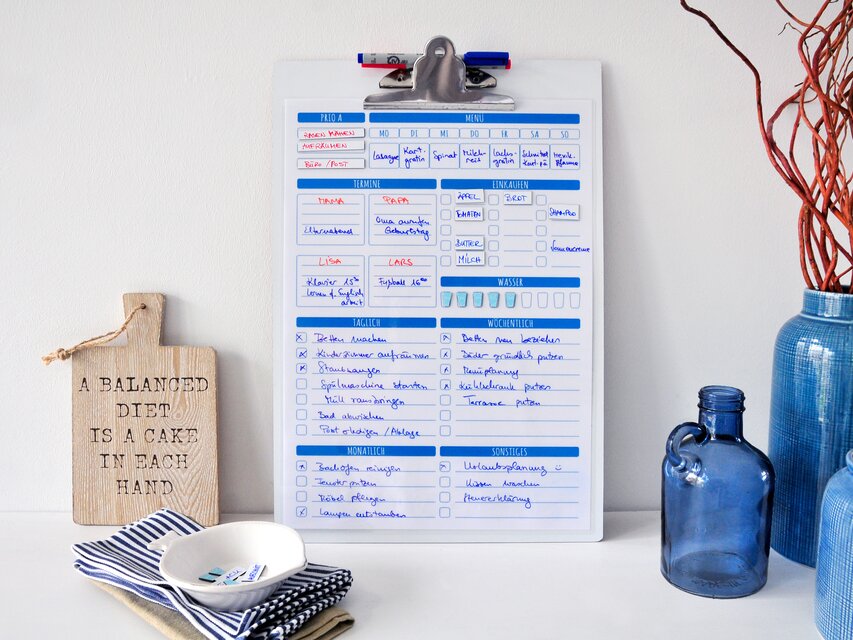 PRIO A
RASEN MÄHEN
AUFRÄUMEN
BÜRO/POST
MENÜ
MO DI MI DO FR SA SO
Lasagne
Kart.-
gratin
Spinat
Milch-
reis
Lachs-
gratin
Schnitzel
TERMINE
MAMA
Elternabend
PAPA
Oma anrufen
Geburtstag
LISA
Klavier 15³⁰
lernen f. Englisch
arbeit
LARS
Fußball 16⁰⁰
EINKAUFEN
ÄPFEL
BROT
TOMATEN
SHAMPOO
BUTTER
MILCH
Sonnencreme
WASSER
TÄGLICH
x Betten machen
x Kinderzimmer aufräumen
x Staubsaugen
Spülmaschine starten
Müll rausbringen
Bad abwischen
Post erledigen / Ablage
WÖCHENTLICH
x Betten neu beziehen
x Bäder gründlich putzen
x Menüplanung
x Kühlschrank putzen
Terrasse putzen
MONATLICH
x Backofen reinigen
Fenster putzen
Möbel pflegen
x Lampen entstauben
SONSTIGES
x Urlaubsplanung
Kissen waschen
Steuererklärung
A BALANCED
DIET
IS A CAKE
IN EACH
HAND